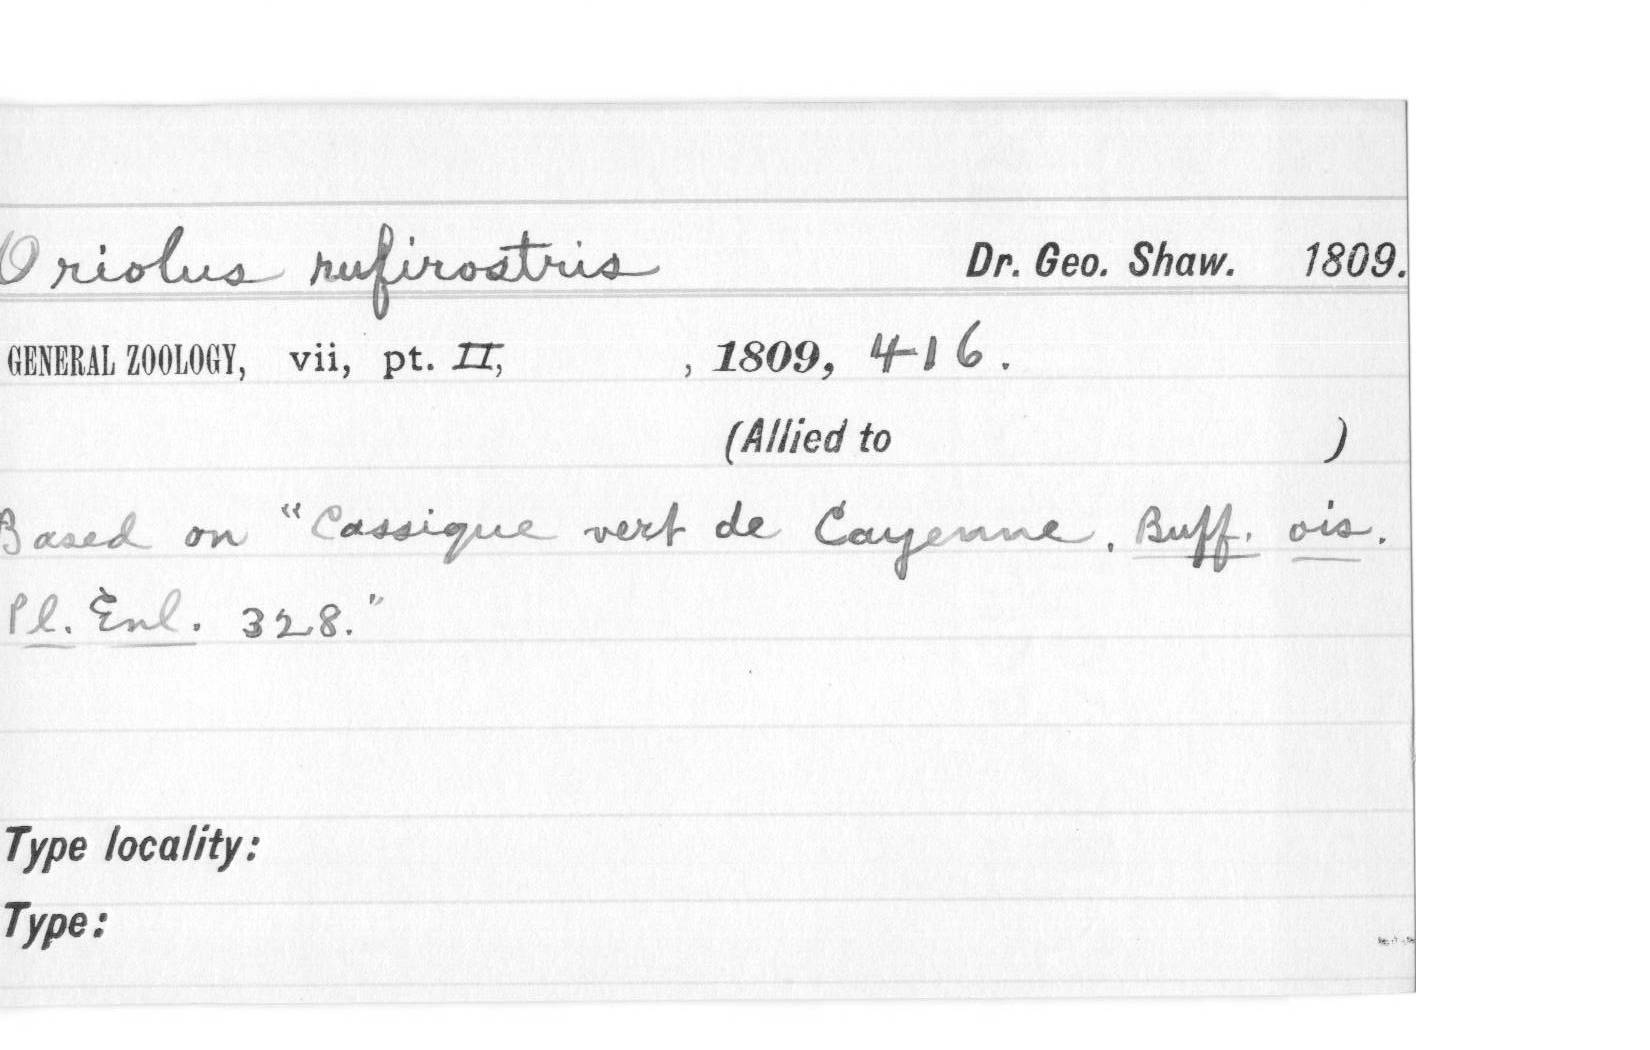 Oriolus rufirostris Dr. Geo. Shaw. 1809.
GENERAL ZOOLOGY, vii, pt. II, , 1809, 416.
(Allied to )
Based on "Cassique vert de Cayenne. Buff. ois.
Pl. Enl. 328."
Type locality:
Type: